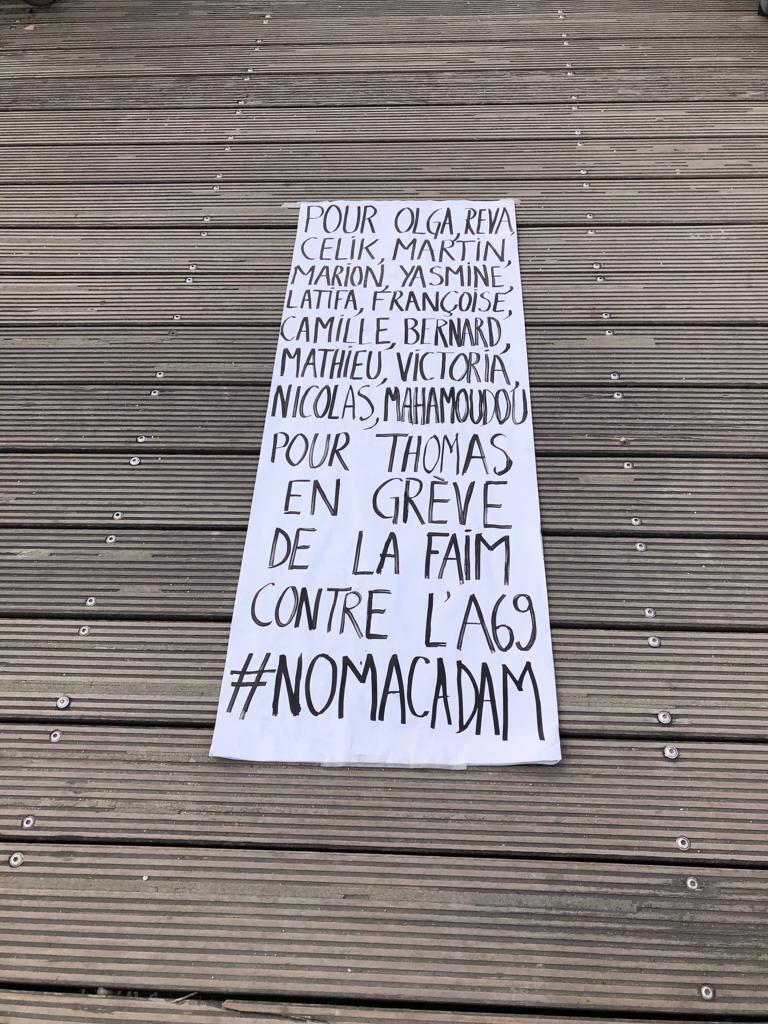 POUR OLGA, REVA,
CELIK, MARTIN,
MARION, YASMINE,
LATIFA, FRANÇOISE,
CAMILLE, BERNARD,
MATHIEU, VICTORIA,
NICOLAS, MAHAMOUDOU
POUR THOMAS
EN GRÈVE
DE LA FAIM
CONTRE L'A69
#NOMACADAM